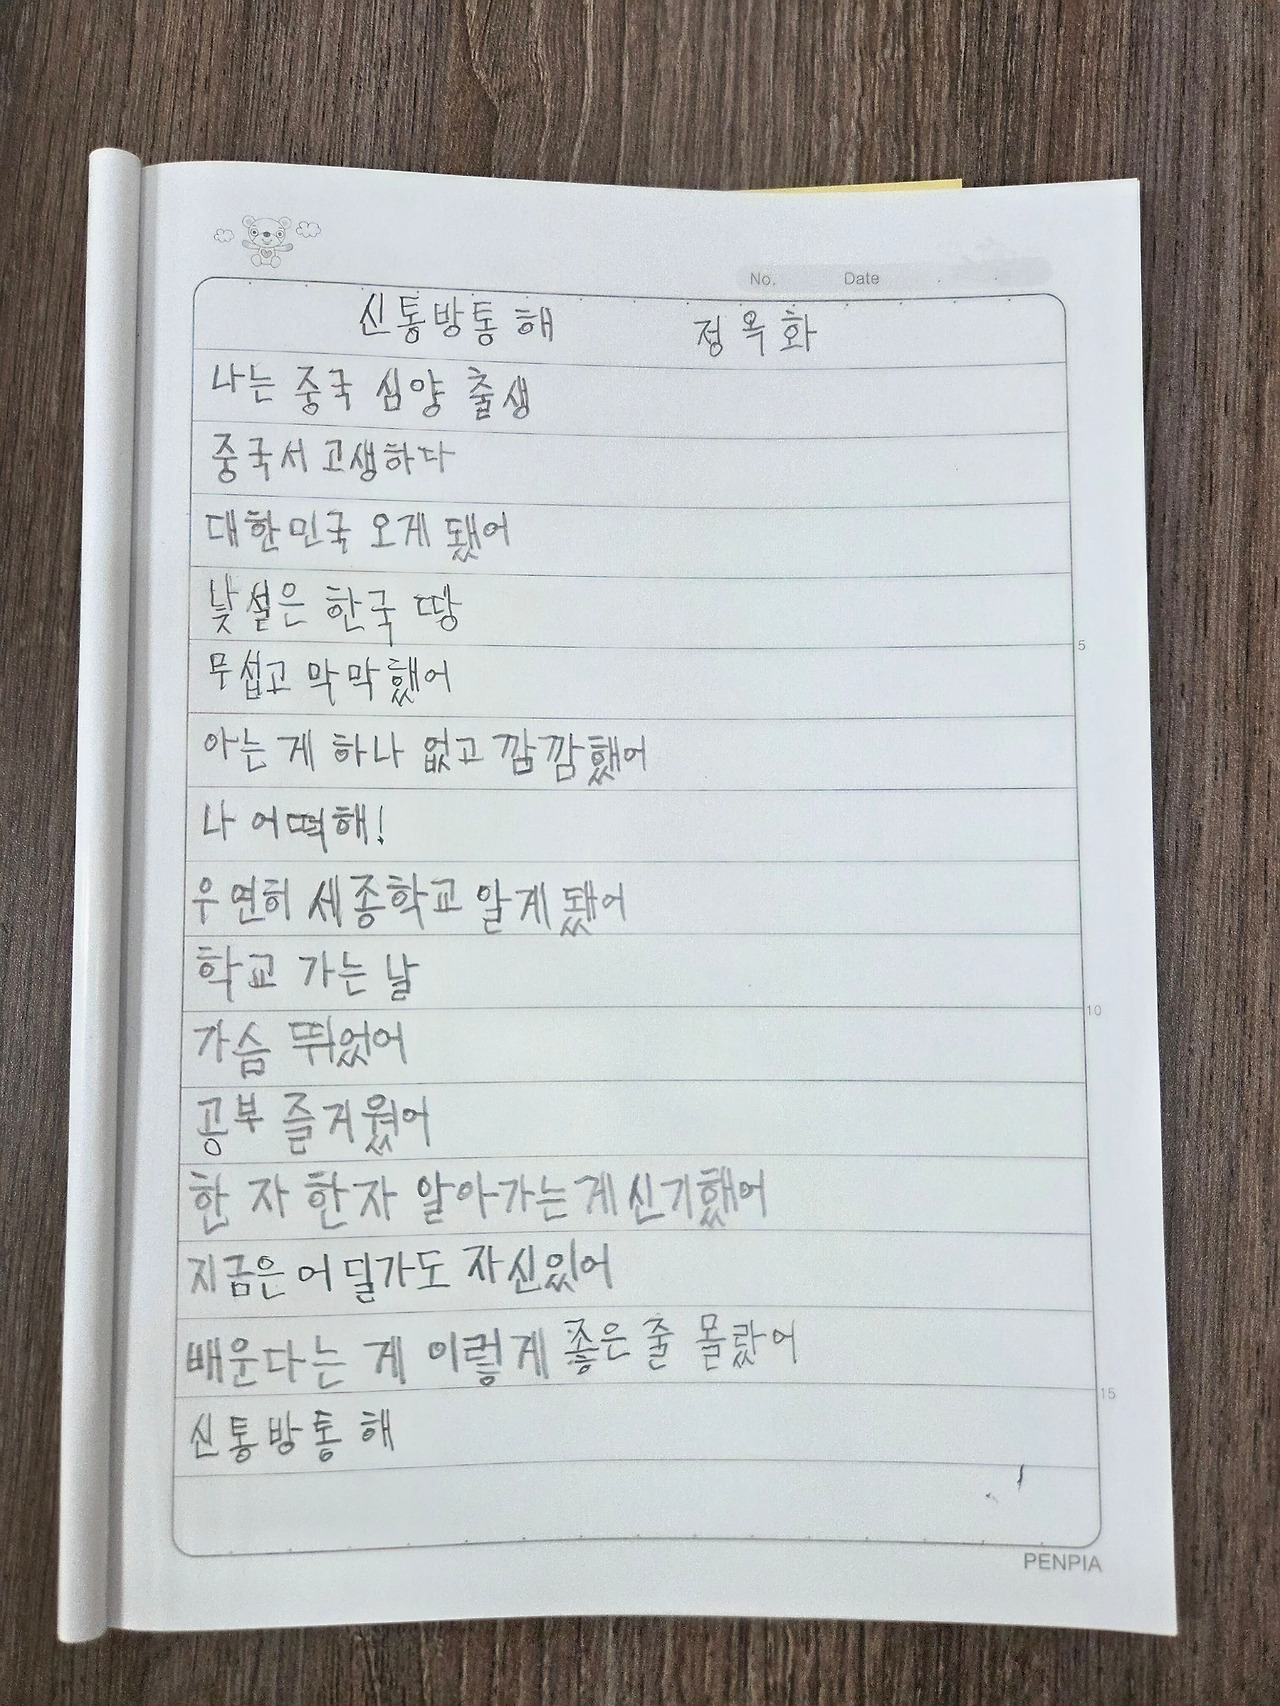 No. Date
신통방통 해 정옥화
나는 중국 심양 출생
중국서 고생하다
대한민국 오게 됐어
낯설은 한국 땅
5
무섭고 막막했어
아는 게 하나 없고 깜깜했어
나 어떡해!
우연히 세종학교 알게 됐어
학교 가는 날
10
가슴 뛰었어
공부 즐거웠어
한 자 한자 알아가는게 신기했어
지금은 어딜가도 자신있어
배운다는 게 이렇게 좋은 줄 몰랐어
15
신통방통 해
PENPIA